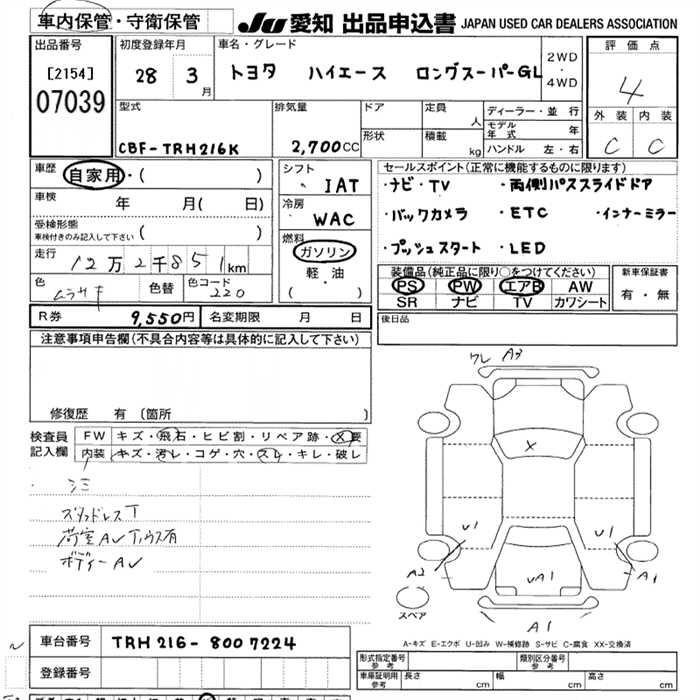 車内保管・守衛保管
JU 愛知 出品申込書 JAPAN USED CAR DEALERS ASSOCIATION
出品番号
[2154]
07039
初度登録年月
28 3月
車名・グレード
トヨタ ハイエース ロングスーパーGL
2WD・4WD
評価点
4
外装 内装
C C
型式
CBF-TRH216K
排気量
2,700cc
ドア
形状
定員 人
積載 kg
ディーラー・並行
モデル年式 年
ハンドル 左・右
車歴
自家用・( )
車検 年 月( 日)
受検形態
車検付きのみ記入して下さい ( )
走行 12万2千851km
色 ムラサキ 色替 色コード 220
シフト
IAT
冷房
WAC
燃料
ガソリン
軽・油
( )
セールスポイント(正常に機能するものに限ります)
・ナビ・TV ・両側パワスライドドア
・バックカメラ ・ETC ・インナーミラー
・プッシュスタート ・LED
装備品(純正品に限り○をつけてください)
PS PW エアB AW
SR ナビ TV カワシート
新車保証書
有・無
R券 9,550円 名変期限 月 日
後日品
注意事項申告欄(不具合内容等は具体的に記入して下さい)
修復歴 有(箇所 )
検査員記入欄
FW キズ・飛石・ヒビ割・リペア跡・X要
内装 キズ・汚レ・コゲ・穴・スレ・キレ・破レ
シミ
スタッドレスT
荷室AV Tハウス有
ボディーAV
ワレ A3
X
U1 U1
A2 UA1 A1
スペア
A1
A-キズ E-エクボ U-凹み W-補修跡 S-サビ C-腐食 XX-交換済
車台番号 TRH216-8007224
登録番号
形式指定番号 参考
類別区分番号 参考
車庫証明用 参考
長さ cm 幅 cm 高さ cm